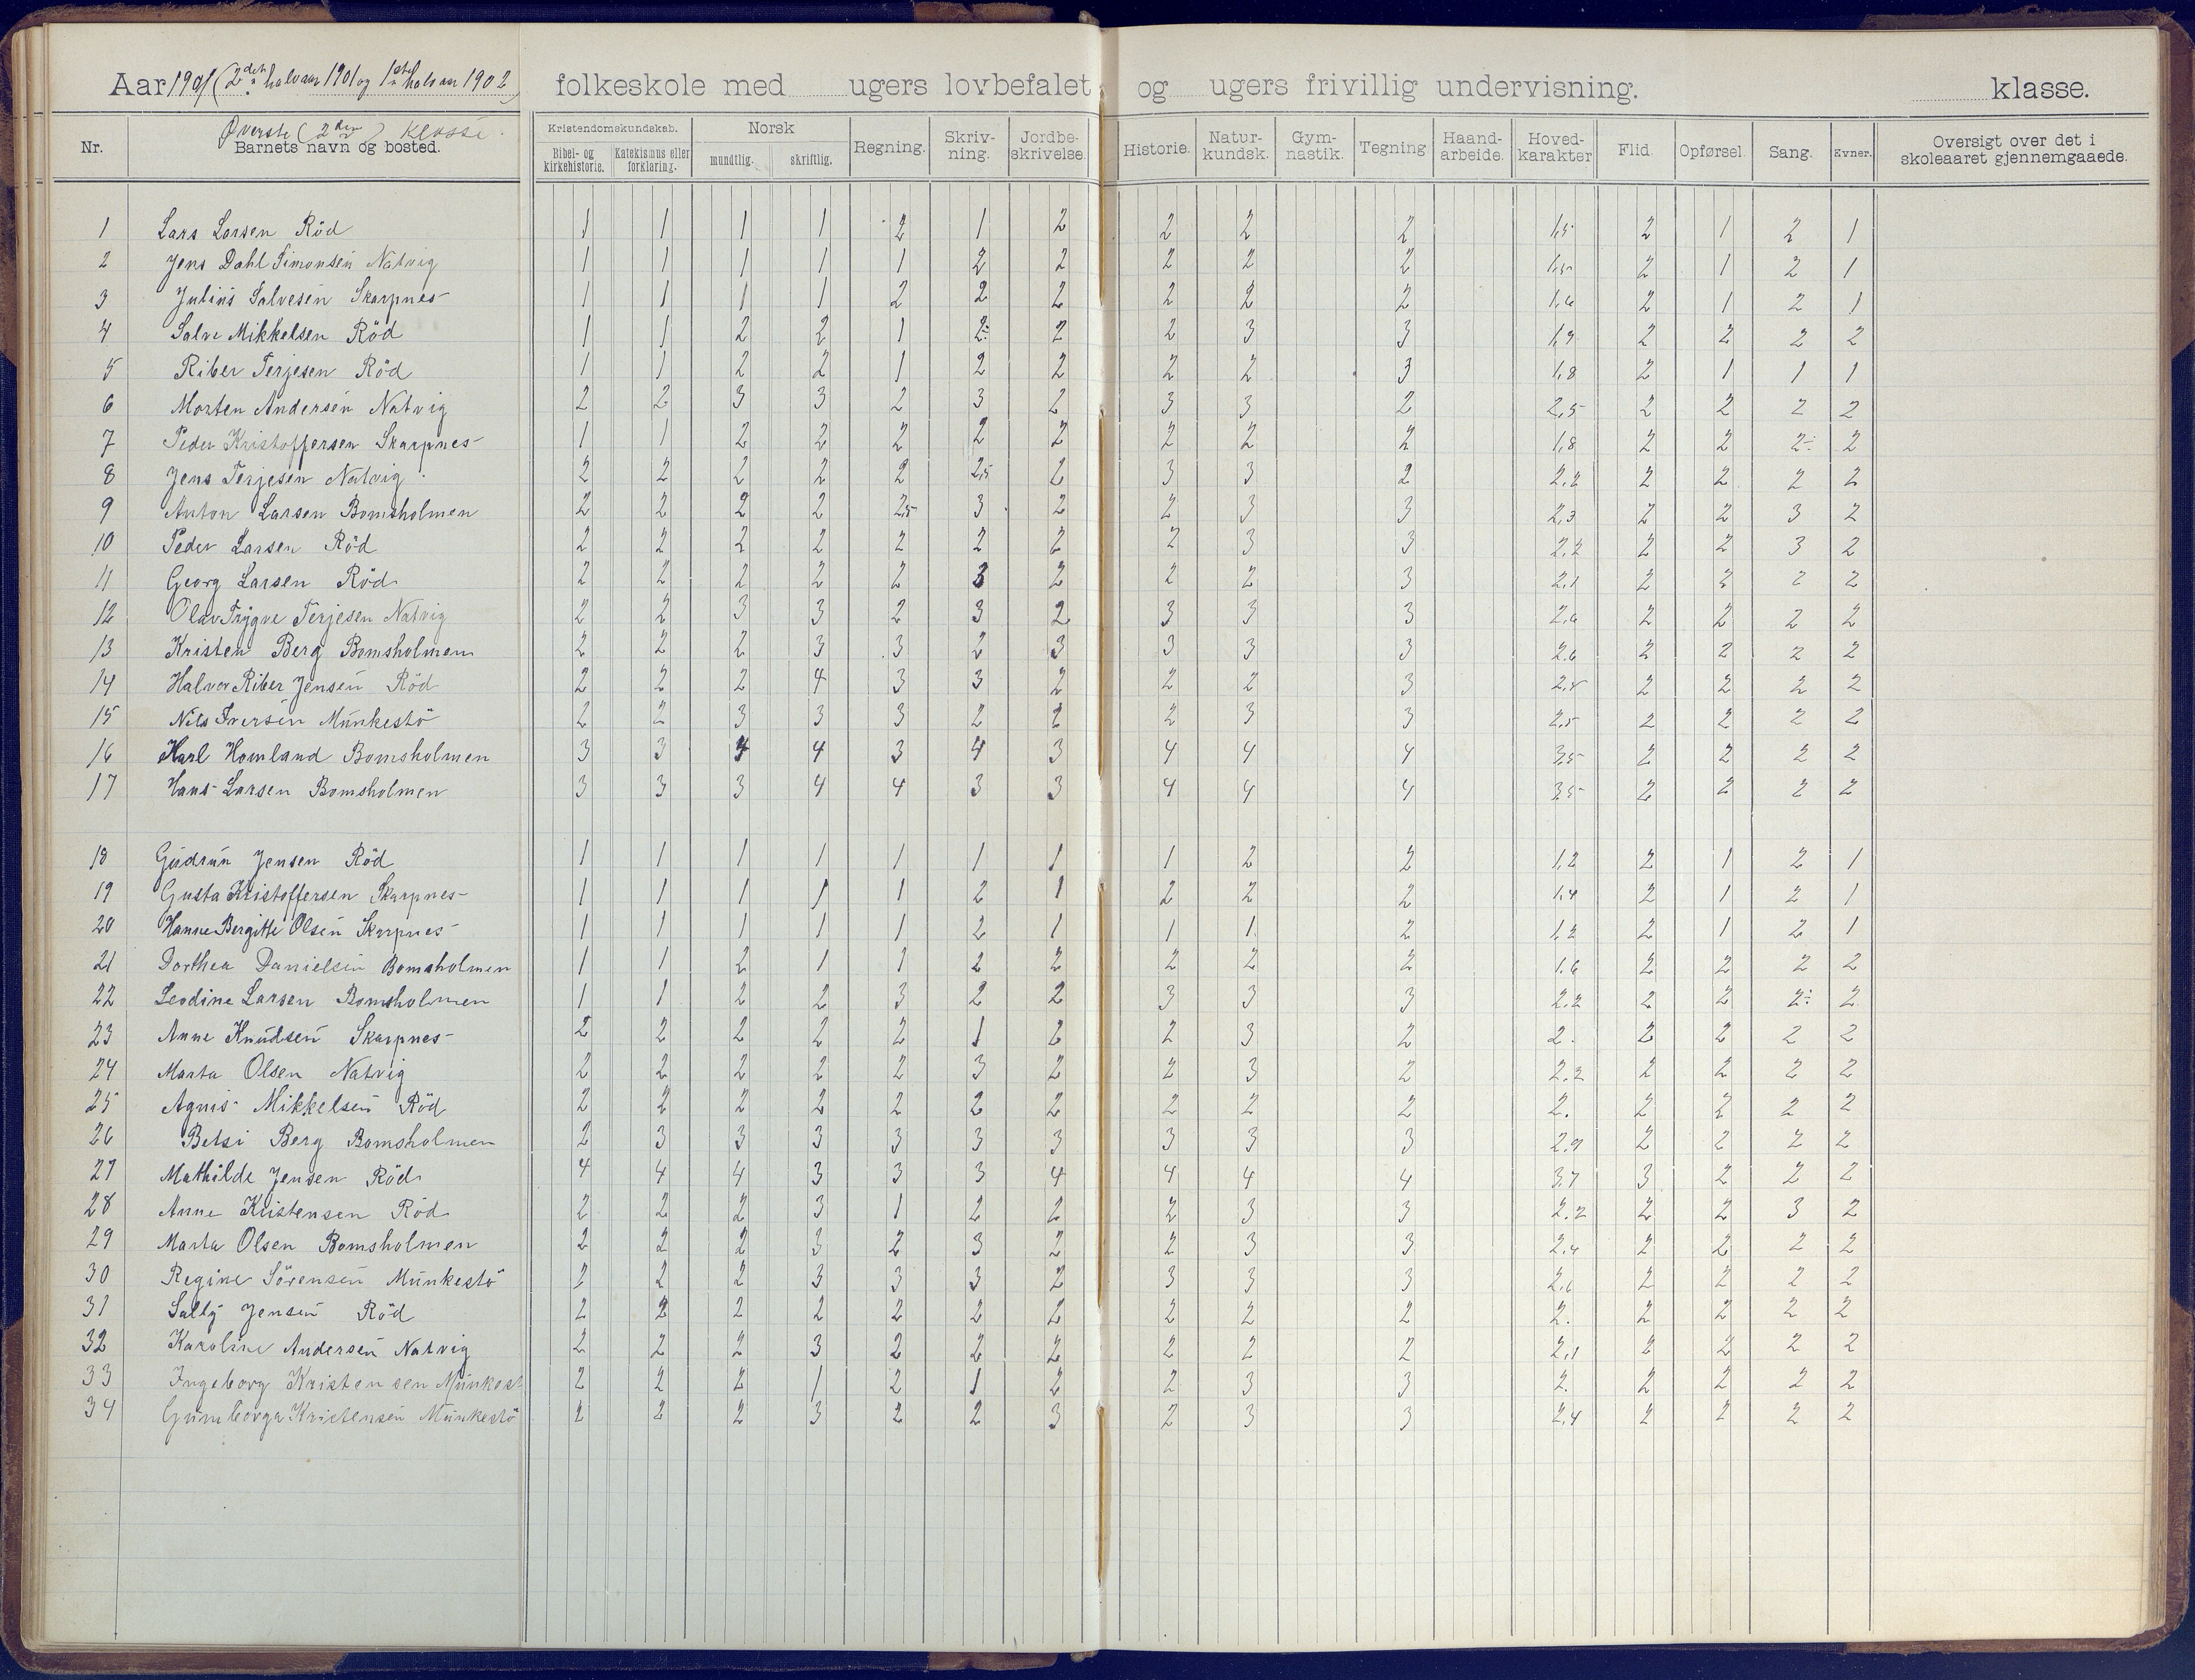 Aar 1901 (2det halvaar 1901 og 1ste halvaar 1902) folkeskole med ugers lovbefalet og ugers frivillig undervisning. klasse.
Øverste (2den) klasse.
Nr. Barnets navn og bosted. Kristendomskundskab. Bibel- og kirkehistorie. Katekismus eller forklaring. Norsk mundtlig. skriftlig. Regning. Skriv-ning. Jordbe-skrivelse. Historie. Natur-kundsk. Gym-nastik. Tegning Haand-arbeide. Hoved-karakter Flid. Opførsel. Sang. Evner. Oversigt over det i skoleaaret gjennemgaaede.
1 Lars Larsen Röd 1 1 1 1 2 1 2 2 2 2 1,5 2 1 2 1
2 Jens Dahl Simonsen Natvig 1 1 1 1 1 2 2 2 2 2 1,5 2 1 2 1
3 Julius Salvesen Skarpnes 1 1 1 1 2 2 2 2 2 2 1,6 2 1 2 1
4 Salve Mikkelsen Röd 1 1 2 2 1 2÷ 2 2 3 3 1,9 2 2 2 2
5 Riber Terjesen Röd 1 1 2 2 1 2 2 2 2 3 1,8 2 1 1 1
6 Morten Andersen Natvig 2 2 3 3 2 3 2 3 3 2 2,5 2 2 2 2
7 Peder Kristoffersen Skarpnes 1 1 2 2 2 2 2 2 2 2 1,8 2 2 2÷ 2
8 Jens Terjesen Natvig 2 2 2 2 2 2,5 2 3 3 2 2,2 2 2 2 2
9 Anton Larsen Bomsholmen 2 2 2 2 2,5 3 2 2 3 3 2,3 2 2 3 2
10 Peder Larsen Röd 2 2 2 2 2 2 2 2 3 3 2,2 2 2 3 2
11 Georg Larsen Röd 2 2 2 2 2 3 2 2 2 3 2,1 2 2 2 2
12 Olav Trygve Terjesen Natvig 2 2 3 3 2 3 2 3 3 3 2,6 2 2 2 2
13 Kristen Berg Bomsholmen 2 2 2 3 3 2 3 3 3 3 2,6 2 2 2 2
14 Halvor Riber Jensen Röd 2 2 2 4 3 3 2 2 2 3 2,5 2 2 2 2
15 Nils Iversen Munkestö 2 2 3 3 3 2 2 2 3 3 2,5 2 2 2 2
16 Karl Homland Bomsholmen 3 3 4 4 3 4 3 4 4 4 3,5 2 2 2 2
17 Hans Larsen Bomsholmen 3 3 3 4 4 3 3 4 4 4 3,5 2 2 2 2
18 Gudrun Jensen Röd 1 1 1 1 1 1 1 1 2 2 1,2 2 1 2 1
19 Gusta Kristoffersen Skarpnes 1 1 1 1 1 2 1 2 2 2 1,4 2 1 2 1
20 Hanne Bergitte Olsen Skarpnes 1 1 1 1 1 2 1 1 1 2 1,2 2 1 2 1
21 Dorthea Danielsen Bomsholmen 1 1 2 1 1 2 2 2 2 2 1.6 2 2 2 2
22 Leodine Larsen Bomsholmen 1 1 2 2 3 2 2 3 3 3 2.2 2 2 2÷ 2
23 Anne Knudsen Skarpnes 2 2 2 2 2 1 2 2 3 2 2. 2 2 2 2
24 Marta Olsen Natvig 2 2 2 2 2 3 2 2 3 2 2.2 2 2 2 2
25 Agnis Mikkelsen Röd 2 2 2 2 2 2 2 2 2 2 2. 2 2 2 2
26 Betsi Berg Bomsholmen 2 3 3 3 3 3 3 3 3 3 2.9 2 2 2 2
27 Mathilde Jensen Röd 4 4 4 3 3 3 4 4 4 4 3,7 3 2 2 2
28 Anne Kristensen Röd 2 2 2 3 1 2 2 2 3 3 2.2 2 2 3 2
29 Marta Olsen Bomsholmen 2 2 2 3 2 3 2 2 3 3 2.4 2 2 2 2
30 Regine Sörensen Munkestö 2 2 2 3 3 3 2 3 3 3 2,6 2 2 2 2
31 Sally Jensen Röd 2 2 2 2 2 2 2 2 2 2 2. 2 2 2 2
32 Karoline Andersen Natvig 2 2 2 3 2 2 2 2 2 2 2,1 2 2 2 2
33 Ingeborg Kristensen Munkest 2 2 2 1 2 1 2 2 3 3 2. 2 2 2 2
34 Gunnborga Kristensen Munkestö 2 2 2 3 2 2 3 2 3 3 2,4 2 2 2 2